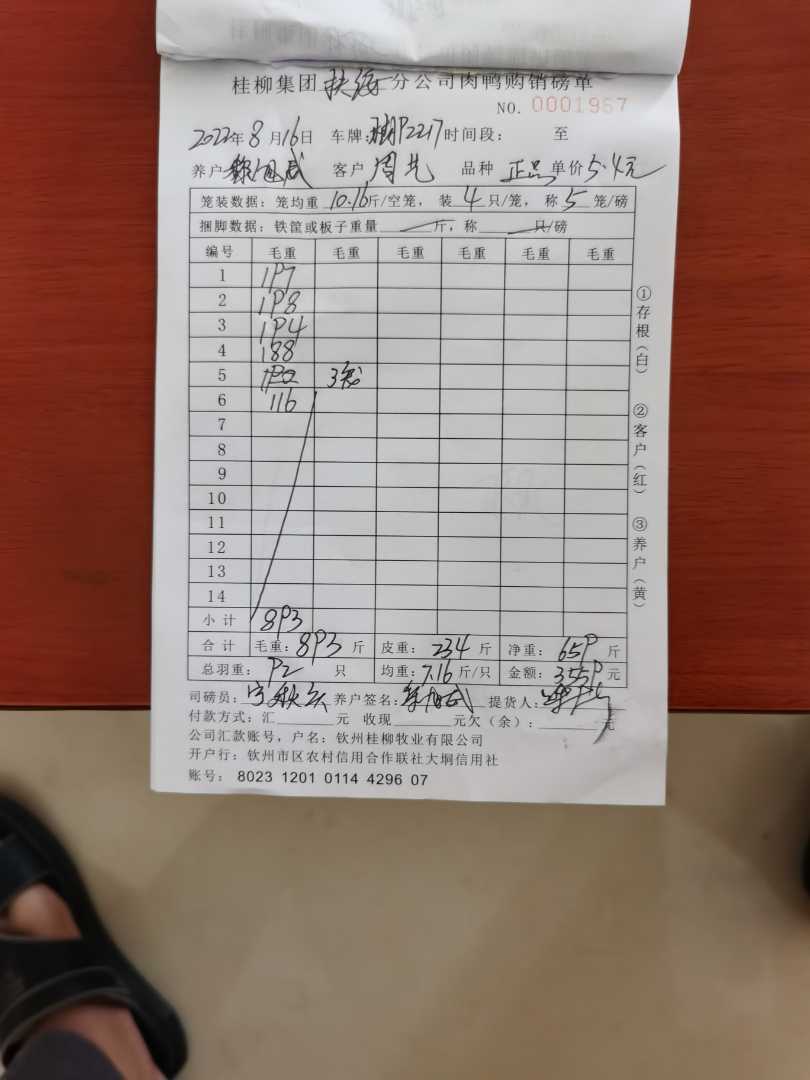 桂柳集团 扶绥 分公司肉鸭购销磅单
NO. 0001967
2022年8月16日 车牌: 时间段: 至
养户 客户 周 品种 正品 单价5.4元
笼装数据: 笼均重 10.16斤/空笼, 装 4 只/笼, 称 5 笼/磅
捆脚数据: 铁筐或板子重量 斤, 称 只/磅
编号 毛重 毛重 毛重 毛重 毛重 毛重
1 197
2 198
3 194
4 188
5 3笼
6 116
7
8
9
10
11
12
13
14
小计 893
合计 毛重: 893 斤 皮重: 234 斤 净重: 659 斤
总羽重: 92 只 均重: 7.16 斤/只 金额: 3559 元
司磅员: 养户签名: 提货人:
付款方式: 汇 元 收现 元欠(余): 元
公司汇款账号, 户名: 钦州桂柳牧业有限公司
开户行: 钦州市区农村信用合作联社大垌信用社
账号: 8023 1201 0114 4296 07
①存根(白)
②客户(红)
③养户(黄)